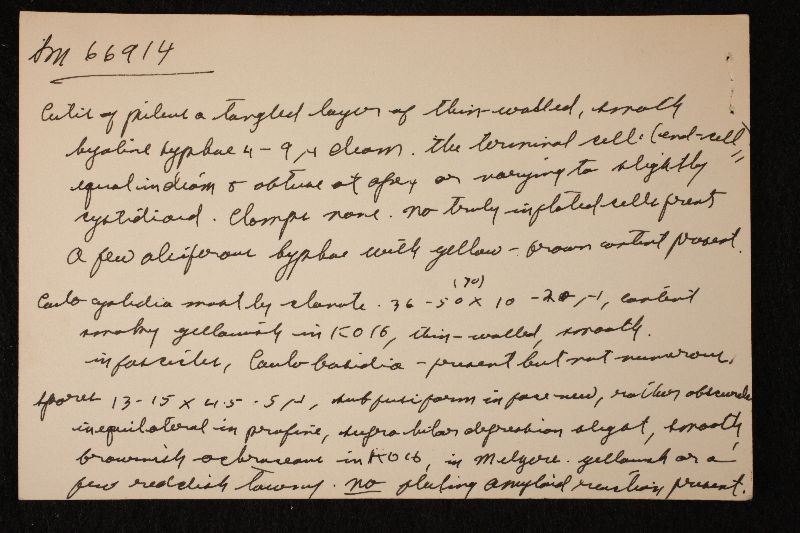 Sm 66914
Cutis of pileus a tangled layer of thin-walled, smooth
hyaline hyphae 4-9 µ diam. the terminal cell: (end-cell)
equal in diam & obtuse at apex or varying to slightly
cystidioid. Clamps none. no truly inflated cells present
A few oleiferous hyphae with yellow-brown content present.
Caulocystidia mostly clavate. 36-50 (70) x 10-20 µ, content
smoky yellowish in KOH, thin-walled, smooth.
in fascicles, Caulobasidia - present but not numerous.
Spores 13-15 x 4.5-5 µ, subfusiform in face view, rather obscurely
inequilateral in profile, suprahilar depression slight, smooth,
brownish ochraceous in KOH, in Melzers yellowish or a
few reddish tawny. no fleeting amyloid reaction present.